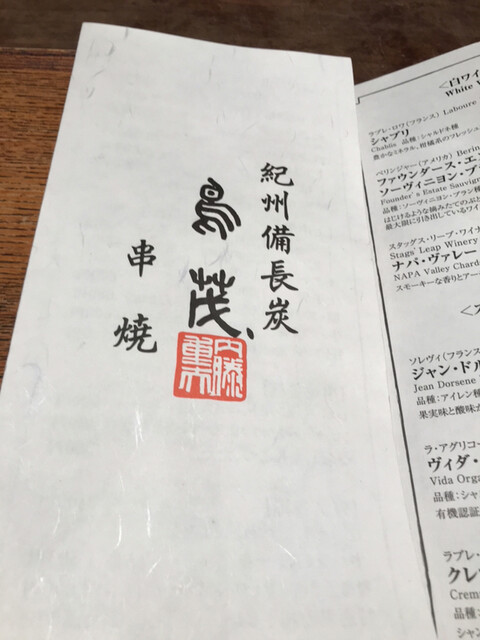 紀州備長炭
鳥茂
串焼
内藤
<白ワイ
White
ラブレ・ロワ(フランス) Laboure
シャブリ
Chablis 品種:シャルドネ種
豊かなミネラル、柑橘系のフレッシュ
ベリンジャー(アメリカ) Berin
ファウンダース・エ
ソーヴィニヨン・ブ
Founder's Estate Sauvign
品種:ソーヴィニヨン・ブラン種
はじけるような摘みたてのぶど
最大限に引き出しているワイ
スタッグス・リープ・ワイナ
Stags' Leap Winery
ナパ・ヴァレー
NAPA Valley Chard
スモーキーな香りとアー
ソレヴィ(フランス
ジャン・ドル
Jean Dorsene
品種:アイレン種
果実味と酸味が
ラ・アグリコー
ヴィダ・
Vida Orga
品種:シャ
有機認証
ラブレ・
クレ
Crem
品種:
シャン